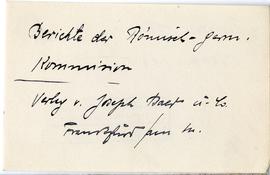 Berichte der Römisch-germ.
Kommission
Verlag v. Joseph Baer u. Co.
Frankfurt am M.